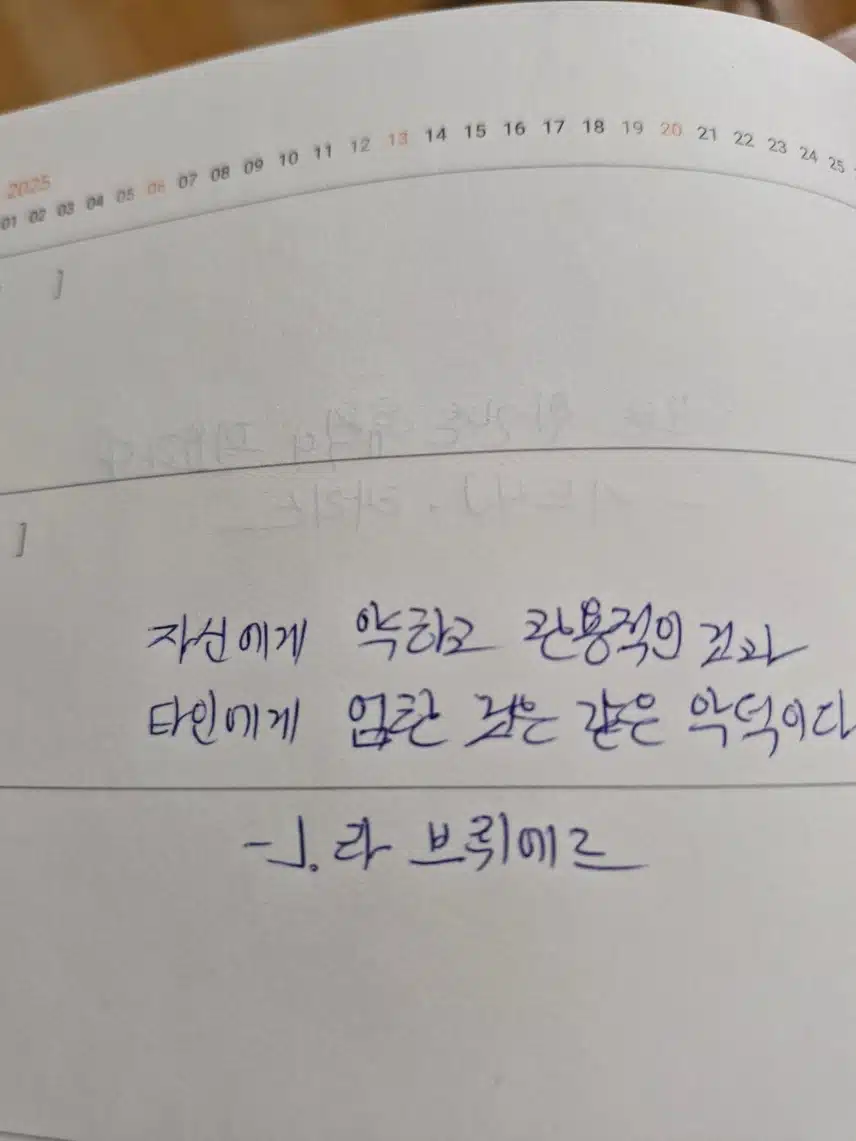 2025
01 02 03 04 05 06 07 08 09 10 11 12 13 14 15 16 17 18 19 20 21 22 23 24 25
]
]
자신에게 약하고 관용적인 것과
타인에게 엄한 것은 같은 악덕이다
-J. 라 브뤼에르